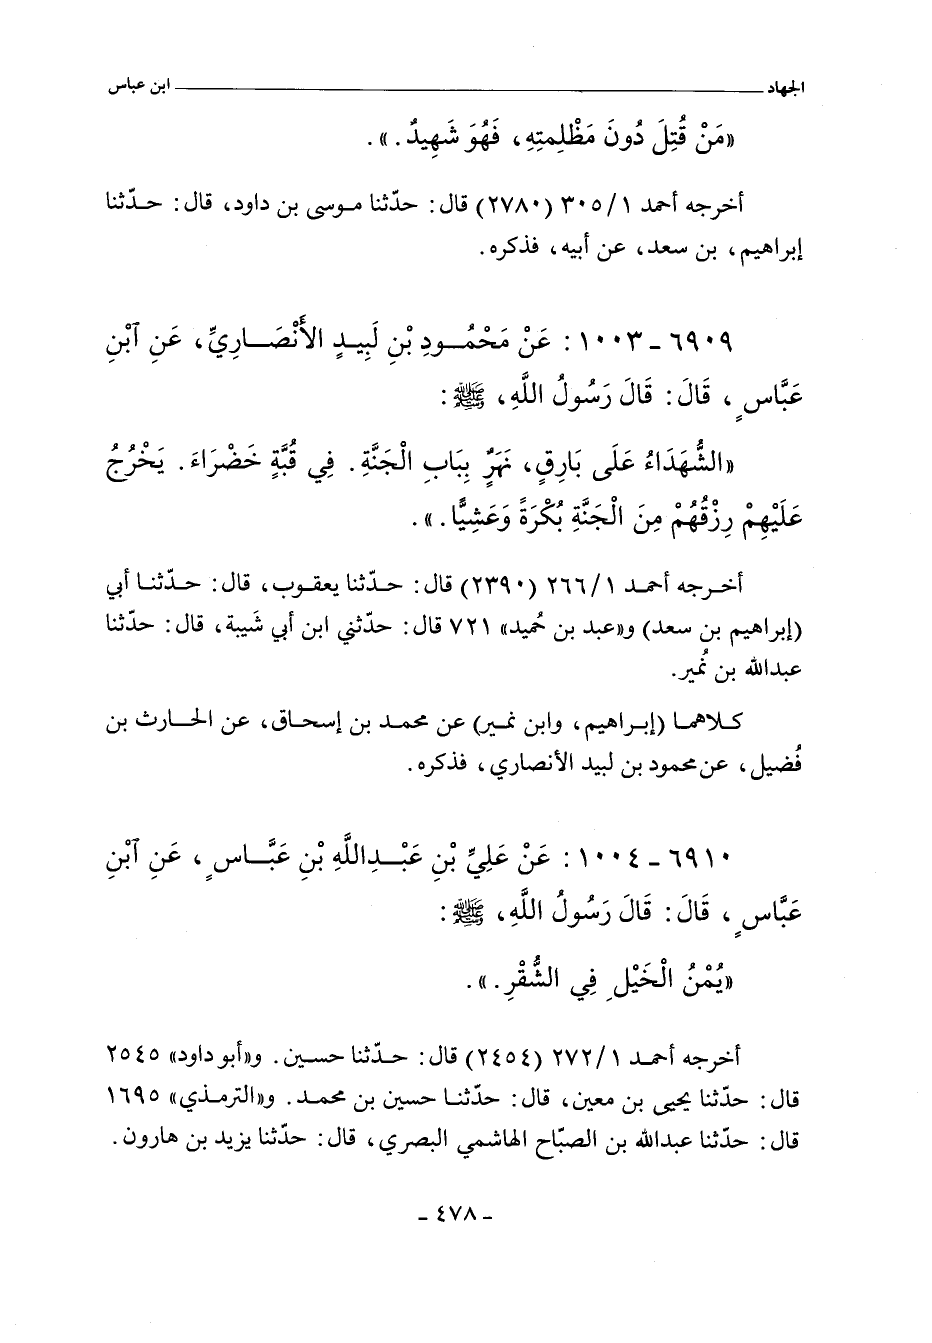 الجهاد ــــــــــــــــــــــــــــــــــــــــ ابن عباس
«مَنْ قُتِلَ دُونَ مَظْلِمتِهِ، فَهُوَ شَهِيدٌ.».
أخرجه أحمد ٣٠٥/١ (٢٧٨٠) قال: حدّثنا موسى بن داود، قال: حدّثنا
إبراهيم، بن سعد، عن أبيه، فذكره.
٦٩٠٩ - ١٠٠٣: عَنْ مَحْمُودِ بْنِ لَبِيدٍ الأَنْصَارِيِّ، عَنِ ٱبْنِ
عَبَّاسٍ، قَالَ: قَالَ رَسُولُ اللَّهِ، ﷺ:
«الشُّهَدَاءُ عَلَى بَارِقٍ، نَهَرٌ بِبَابِ الْجَنَّةِ. فِي قُبَّةٍ خَضْرَاءَ. يَخْرُجُ
عَلَيْهِمْ رِزْقُهُمْ مِنَ الْجَنَّةِ بُكْرَةً وَعَشِيًّا.».
أخرجه أحمد ٢٦٦/١ (٢٣٩٠) قال: حدّثنا يعقوب، قال: حدّثنا أبي
(إبراهيم بن سعد) و«عبد بن حُميد» ٧٢١ قال: حدّثني ابن أبي شَيبة، قال: حدّثنا
عبدالله بن نُمير.
كلاهما (إبراهيم، وابن نمير) عن محمد بن إسحاق، عن الحارث بن
فُضيل، عن محمود بن لبيد الأنصاري، فذكره.
٦٩١٠ - ١٠٠٤: عَنْ عَلِيِّ بْنِ عَبْدِاللَّهِ بْنِ عَبَّاسٍ، عَنِ ٱبْنِ
عَبَّاسٍ، قَالَ: قَالَ رَسُولُ اللَّهِ، ﷺ:
«يُمْنُ الْخَيْلِ فِي الشُّقْرِ.».
أخرجه أحمد ٢٧٢/١ (٢٤٥٤) قال: حدّثنا حسين. و«أبو داود» ٢٥٤٥
قال: حدّثنا يحيى بن معين، قال: حدّثنا حسين بن محمد. و«الترمذي» ١٦٩٥
قال: حدّثنا عبدالله بن الصبّاح الهاشمي البصري، قال: حدّثنا يزيد بن هارون.
- ٤٧٨ -